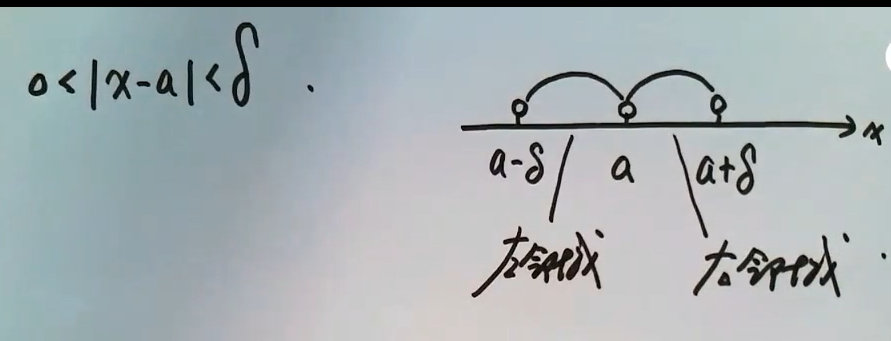 0<|x-a|<δ.
x
a-δ a a+δ
左邻域 右邻域.